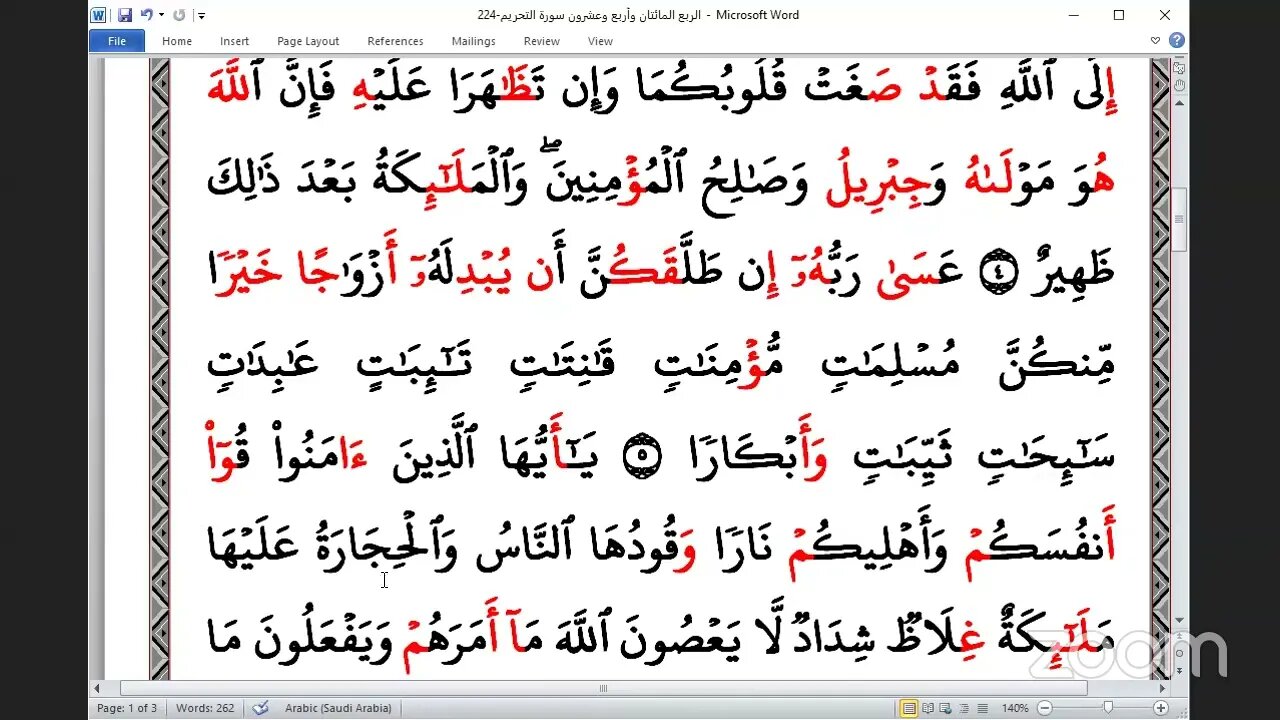 الربع المائتان وأربع وعشرون سورة التحريم-224 - Microsoft Word
File Home Insert Page Layout References Mailings Review View
إِلَى ٱللَّهِ فَقَدۡ صَغَتۡ قُلُوبُكُمَا وَإِن تَظَّٰهَرَا عَلَيۡهِ فَإِنَّ ٱللَّهَ
هُوَ مَوۡلَىٰهُ وَجِبۡرِيلُ وَصَٰلِحُ ٱلۡمُؤۡمِنِينَۖ وَٱلۡمَلَٰٓئِكَةُ بَعۡدَ ذَٰلِكَ
ظَهِيرٌ ٤ عَسَىٰ رَبُّهُۥٓ إِن طَلَّقَكُنَّ أَن يُبۡدِلَهُۥٓ أَزۡوَٰجًا خَيۡرٗا
مِّنكُنَّ مُسۡلِمَٰتٖ مُّؤۡمِنَٰتٖ قَٰنِتَٰتٖ تَٰٓئِبَٰتٍ عَٰبِدَٰتٖ
سَٰٓئِحَٰتٖ ثَيِّبَٰتٖ وَأَبۡكَارٗا ٥ يَٰٓأَيُّهَا ٱلَّذِينَ ءَامَنُواْ قُوٓاْ
أَنفُسَكُمۡ وَأَهۡلِيكُمۡ نَارٗا وَقُودُهَا ٱلنَّاسُ وَٱلۡحِجَارَةُ عَلَيۡهَا
مَلَٰٓئِكَةٌ غِلَاظٞ شِدَادٞ لَّا يَعۡصُونَ ٱللَّهَ مَآ أَمَرَهُمۡ وَيَفۡعَلُونَ مَا
zoom
Page: 1 of 3 Words: 262 Arabic (Saudi Arabia) 140%